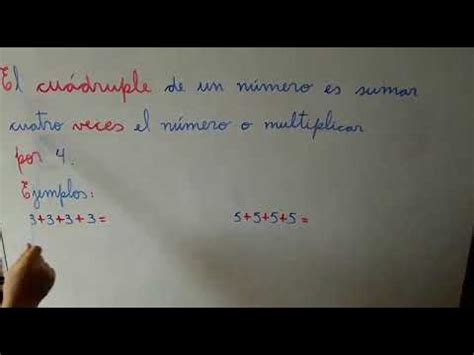 El cuádruple de un número es sumar
cuatro veces el número o multiplicar
por 4.
Ejemplos:
3+3+3+3= 5+5+5+5=